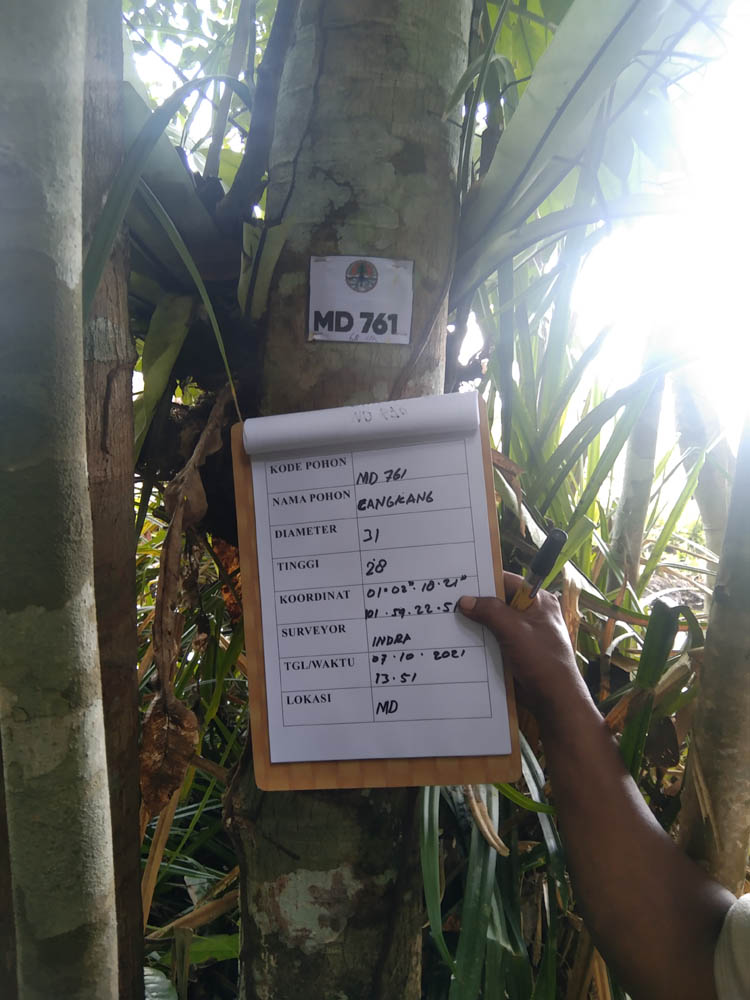 MD 761
KODE POHON MD 761
NAMA POHON CANGKANG
DIAMETER 31
TINGGI 28
KOORDINAT 01.02".18.21"
101.59.22.51
SURVEYOR INDRA
TGL/WAKTU 07.10.2021
13.51
LOKASI MD